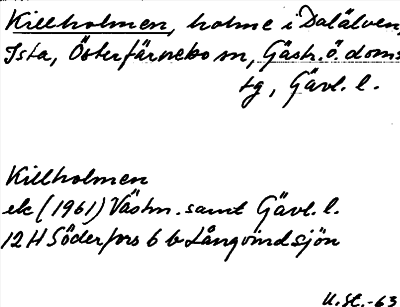 Killholmen, holme i Dalälven,
Ista, Österfärnebo sn, Gästr. ö. doms
tg, Gävl. l.
Killholmen
ek (1961) Västm. samt Gävl. l.
12 H Söderfors 6 b Långvindsjön
U. St. -63